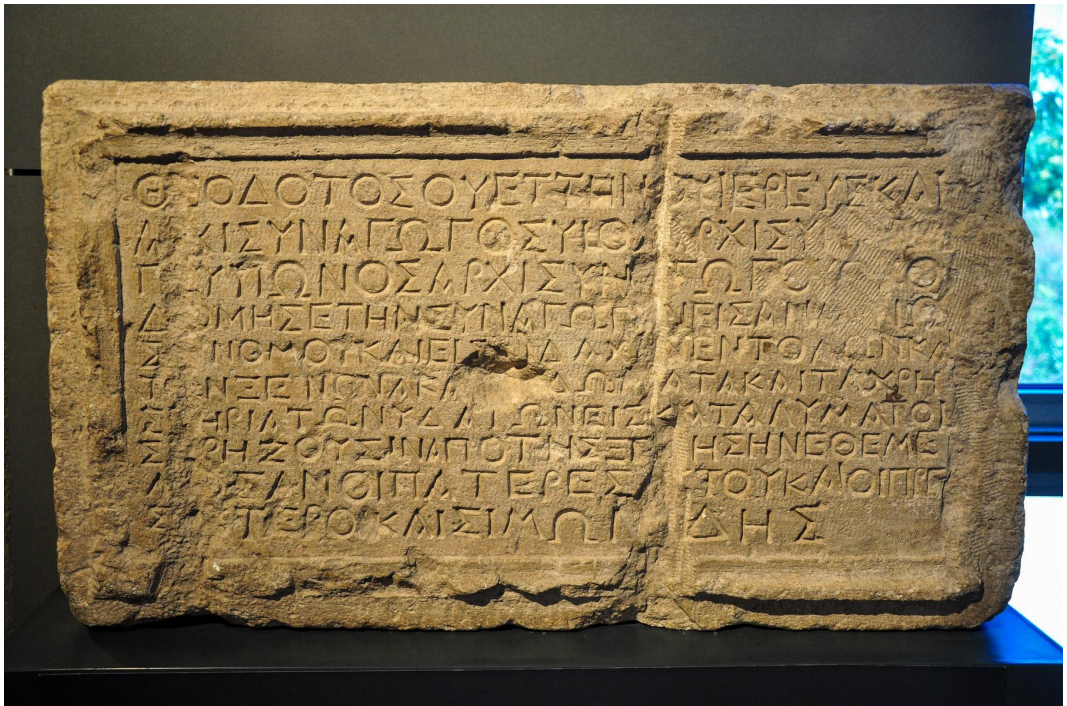 ΘΕΟΔΟΤΟΣΟΥΕΤΤΗΝΟΥΙΕΡΕΥΣΚΑΙ
ΑΡΧΙΣΥΝΑΓΩΓΟΣΥΙΟΣΑΡΧΙΣΥΝ
ΓΟΥΥΙΩΝΟΣΑΡΧΙΣΥΝΑΓΩΓΟΥΩΚΟ
ΔΟΜΗΣΕΤΗΝΣΥΝΑΓΩΓΗΝΕΙΣΑΝΑΓΝΩ
ΣΙΝΝΟΜΟΥΚΑΙΕΙΣΔΙΔΑΧΗΝΕΝΤΟΛΩΝΚΑΙ
ΤΟΝΞΕΝΩΝΑΚΑΙΤΑΔΩΜΑΤΑΚΑΙΤΑΧΡΗ
ΣΤΗΡΙΑΤΩΝΥΔΑΤΩΝΕΙΣΚΑΤΑΛΥΜΑΤΟΙ
ΣΧΡΗΖΟΥΣΙΝΑΠΟΤΗΣΞΕΝΗΣΗΝΕΘΕΜΕ
ΛΙΩΣΑΝΟΙΠΑΤΕΡΕΣΑΥΤΟΥΚΑΙΟΙΠΡΕ
ΣΒΥΤΕΡΟΙΚΑΙΣΙΜΩΝΙΔΗΣ